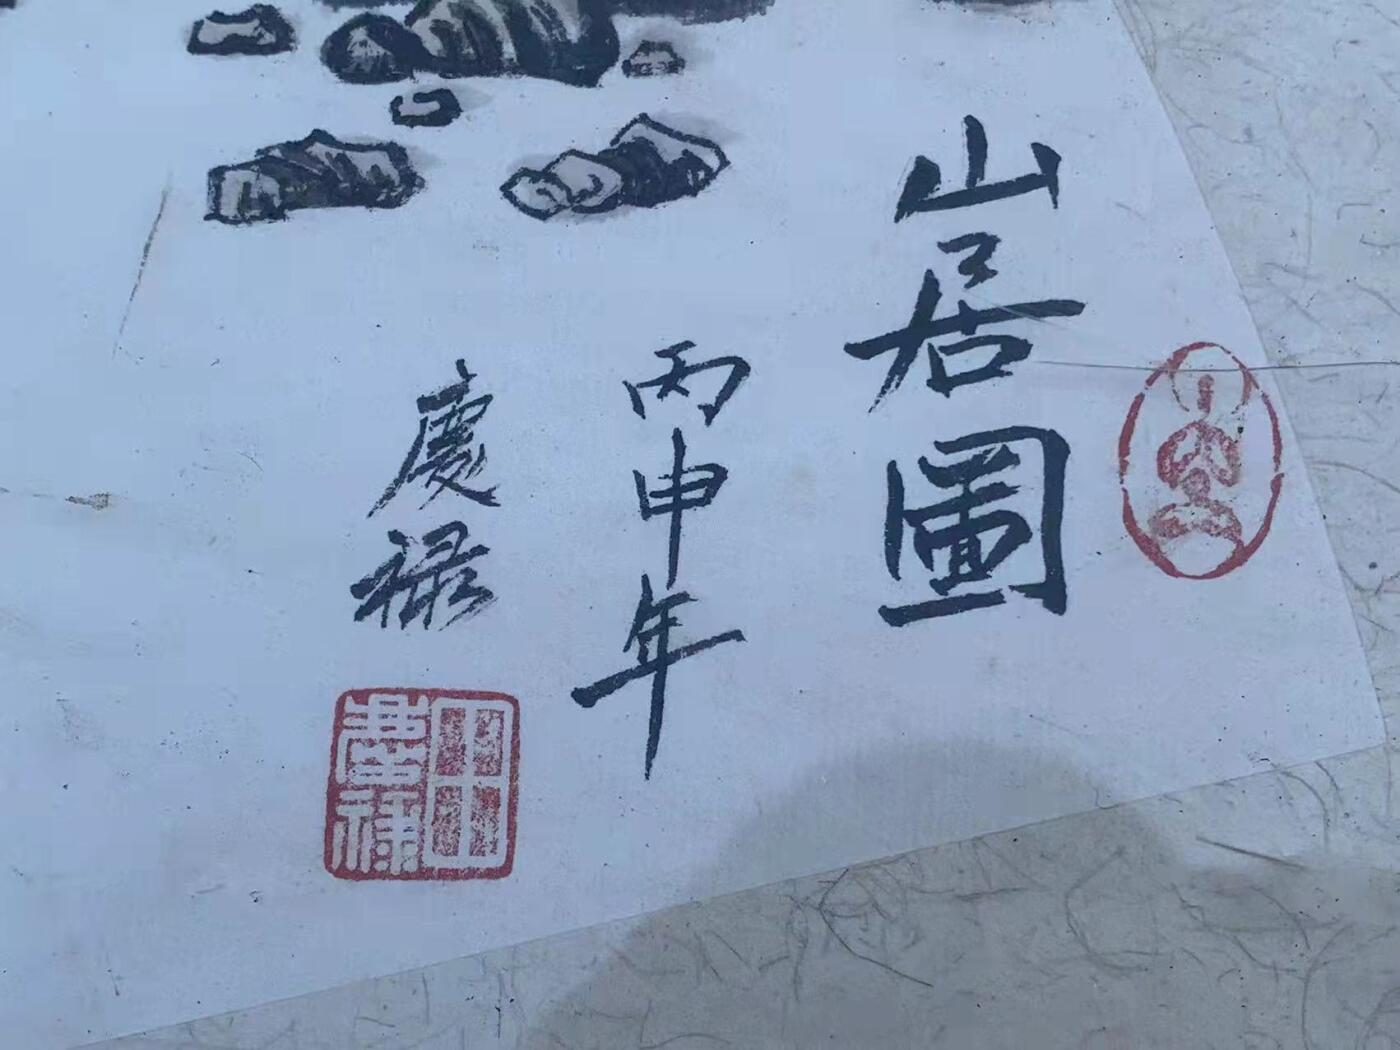 山居圖
丙申年
慶祿